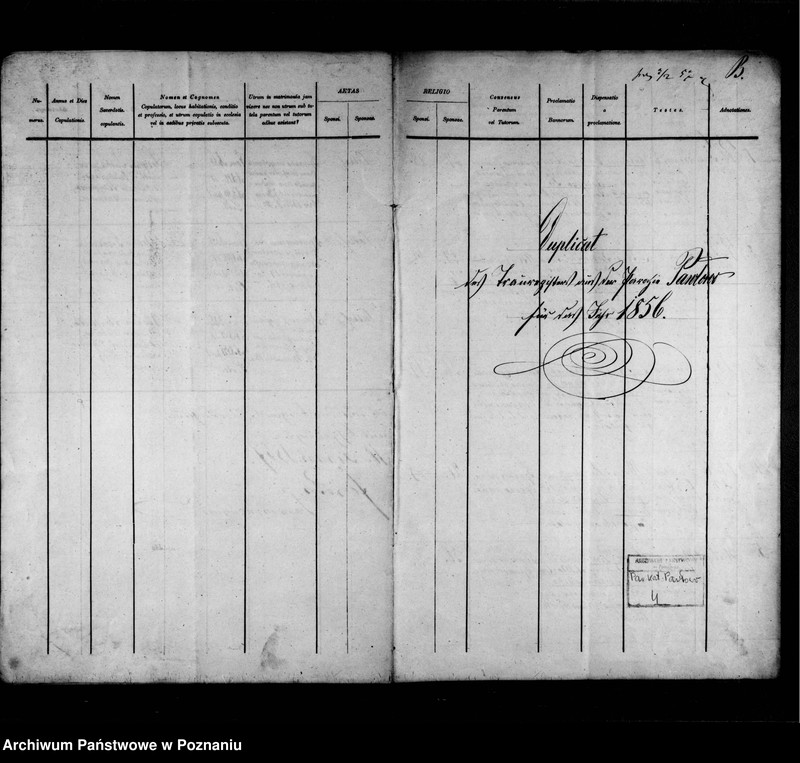 Nu-
merus.
Annus et Dies
Copulationis.
Nomen
Sacerdotis
copulantis.
Nomen et Cognomen
Copulatorum, locus habitationis, conditio
et professio, et utrum copulatio in ecclesia
vel in aedibus privatis solvenda.
Utrum in matrimonio jam
vixere nec non utrum sub tu-
tela parentum vel tutorum
adhuc existant?
AETAS
Sponsi.
Sponsae.
RELIGIO
Sponsi.
Sponsae.
Consensus
Parentum
vel Tutorum.
Proclamatio
Bannorum.
Dispensatio
a
proclamatione.
Testes.
Adnotationes.
B.
Duplicat
des Trauregisters aus der Parochie Pawłowo
für das Jahr 1856.
Par. kat. Pawłowo
4
Archiwum Państwowe w Poznaniu